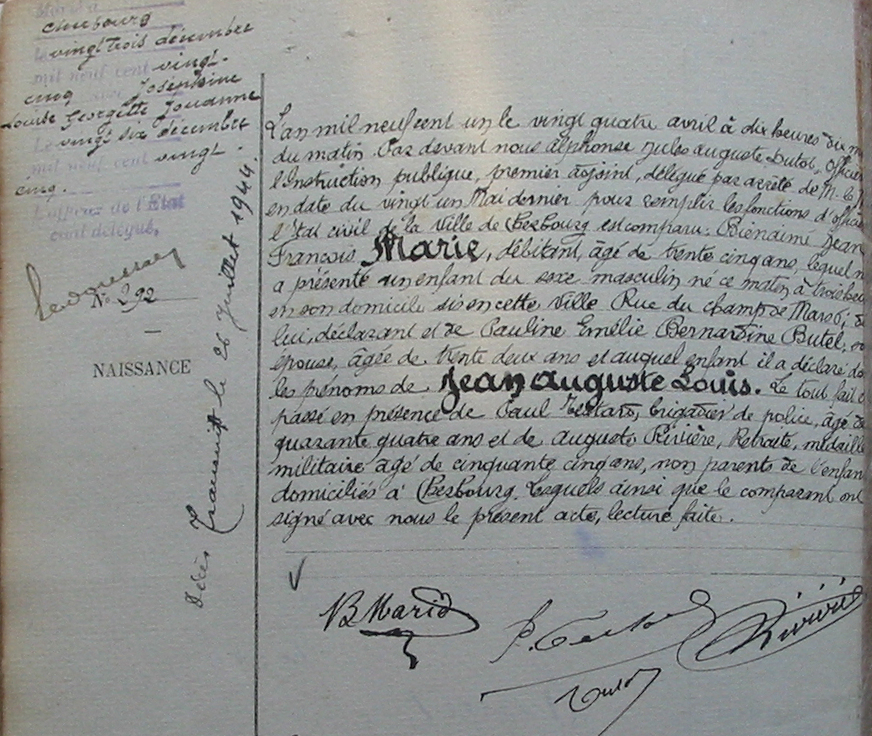 cherbourg
le vingt trois décembre
mil neuf cent vingt-
cinq Joséphine
Louise Georgette Jouanne
Le vingt six décembre
mil neuf cent vingt-
cinq.
L'officier de l'État
civil délégué,
N° 292
NAISSANCE
Décès Transcrit le 26 Juillet 1944.
L'an mil neuf cent un le vingt quatre avril à dix heures dix
du matin Par devant nous alphonse Jules auguste Dutot, officier
l'Instruction publique, premier adjoint, délégué par arrêté de M. le
en date du vingt un Mai dernier pour remplir les fonctions d'officier
l'état civil de la Ville de Cherbourg est comparu Bienaimé Jean
François Marie, débitant, âgé de trente cinq ans, lequel
a présenté un enfant du sexe masculin né ce matin à trois
en son domicile sis en cette Ville Rue du Champ de Mars 6; de
lui, déclarant et de Pauline Emélie Bernardine Butel,
épouse, âgée de trente deux ans et auquel enfant il a déclaré
les prénoms de Jean auguste Louis. Le tout fait
passé en présence de Paul Testard, brigadier de police, âgé de
quarante quatre ans et de auguste Rivière, Retraité, médaillé
militaire âgé de cinquante cinq ans, non parents de l'enfant
domiciliés à Cherbourg, lesquels ainsi que le comparant ont
signé avec nous le présent acte, lecture faite.
B Marie
P. Testard Rivière
Dutot